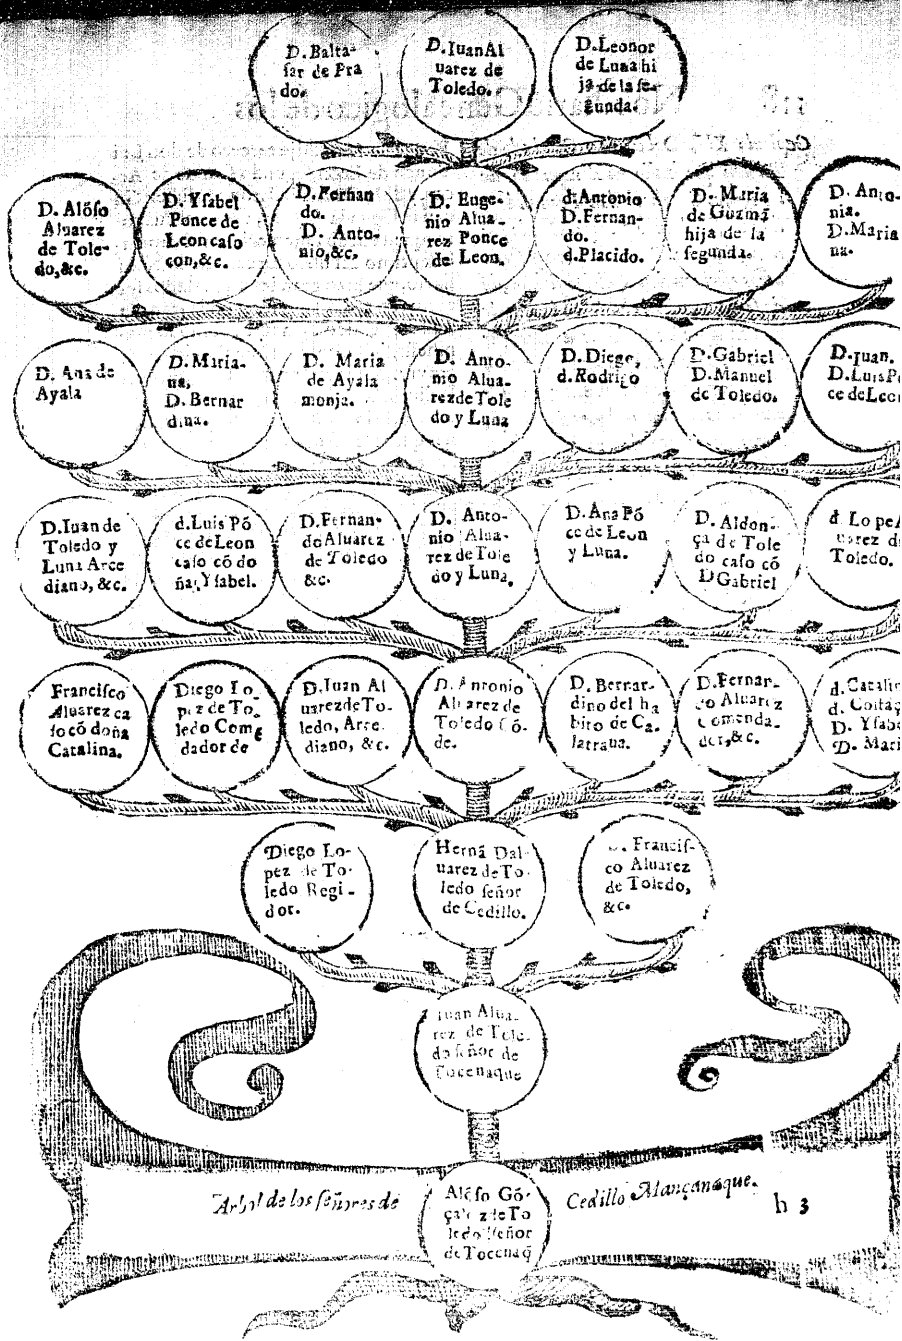 D. Balta-
sar de Pra
do.
D. Iuan Al
uarez de
Toledo.
D. Leonor
de Luna hi
ja de la se-
gunda.
D. Alõso
Aluarez
de Tole-
do, &c.
D. Ysabel
Ponce de
Leon caso
con, &c.
D. Fernan
do.
D. Anto-
nio, &c.
D. Euge-
nio Alua-
rez Ponce
de Leon.
d. Antonio
D. Fernan-
do.
d. Placido.
D. Maria
de Guzmã
hija de la
segunda.
D. Anto-
nia.
D. Maria
na.
D. Ana de
Ayala
D. Maria-
na,
D. Bernar
dina.
D. Maria
de Ayala
monja.
D. Anto-
nio Alua-
rez de Tole
do y Luna
D. Diego,
d. Rodrigo
D. Gabriel
D. Manuel
de Toledo.
D. Juan.
D. Luis Po
ce de Leon
D. Iuan de
Toledo y
Luna Arce
diano, &c.
d. Luis Põ
ce de Leon
caso cõ do
ña, Ysabel.
D. Fernan-
do Aluarez
de Toledo
&c.
D. Anto-
nio Alua-
rez de Tole
do y Luna.
D. Ana Põ
ce de Leon
y Luna.
D. Aldon-
ça de Tole
do caso cõ
D Gabriel
d Lope A
uarez de
Toledo.
Francisco
Aluarez ca
so cõ doña
Catalina.
Diego Lo_
pez de To_
ledo Come
dador de
D. Iuan Al
uarez de To-
ledo, Arce-
diano, &c.
D. Antonio
Aluarez de
Toledo Cõ-
de.
D. Bernar-
dino del ha
bito de Ca-
latraua.
D. Fernan-
do Aluarez
Comenda-
dor, &c.
d. Catalin
d. Costãç
D. Ysabe
D. Mari
Diego Lo-
pez de To-
ledo Regi-
dor.
Hernã Dal
uarez de To-
ledo señor
de Cedillo.
D. Francis-
co Aluarez
de Toledo,
&c.
Iuan Alua-
rez de Tole-
do señor de
Tocenaque
Arbol de los señores de
Alõso Gõ-
çalez de To
ledo señor
de Tocenaq
Cedillo Mançanaque.
h 3